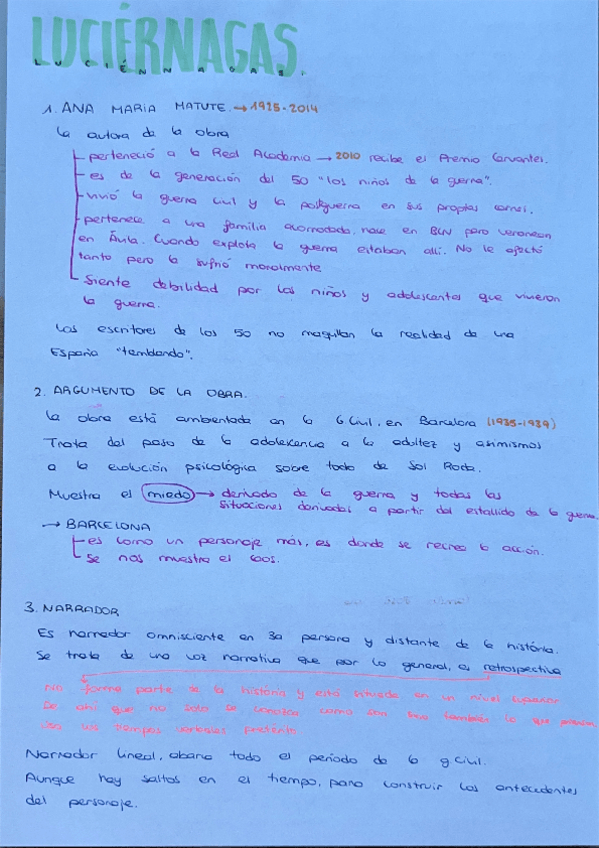 LUCIÉRNAGAS.
LUCIÉRNAGAS.
1. ANA MARIA MATUTE. → 1925-2014
La autora de la obra
perteneció a la Real Academia → 2010 recibe el Premio Cervantes.
es de la generación del 50 "los niños de la guerra".
vivió la guerra civil y la postguerra en sus propias carnes.
pertenece a una familia acomodada, nace en BCN pero veranean
en Ávila. Cuando explota la guerra estaban allí. No le afectó
tanto pero la sufrió moralmente
Siente debilidad por los niños y adolescentes que vivieron
la guerra.
Los escritores de los 50 no maquillan la realidad de una
España "temblando".
2. ARGUMENTO DE LA OBRA.
La obra está ambientada en la G Civil, en Barcelona (1935-1939)
Trata del paso de la adolescencia a la adultez y asimismos
a la evolución psicológica sobre todo de Sol Roda.
Muestra el miedo → derivado de la guerra y todas las
situaciones derivadas a partir del estallido de la guerra.
→ BARCELONA
es como un personaje más, es donde se recrea la acción.
Se nos muestra el caos.
3. NARRADOR
Es narrador omnisciente en 3a persona y distante de la história.
Se trata de una voz narrativa que por lo general, es retrospectiva
No forma parte de la história y está situada en un nivel superior
De ahí que no solo se conozca como son sino también lo que piensan.
Usa los tiempos verbales pretérito
Narrador lineal, abarca todo el período de la g civil.
Aunque hay saltos en el tiempo, para construir los antecedentes
del personaje.